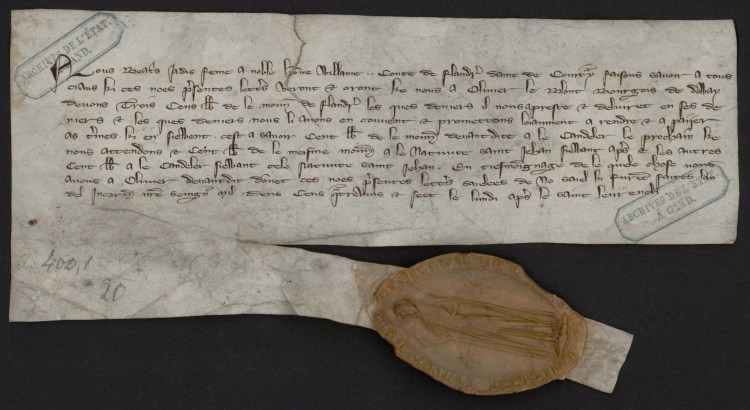 ARCHIVES DE L'ÉTAT
GAND.
Nous Beatris jadis feme a noble home Willaume .. Conte de Flandres dame de Courtray faisons savoir a tous
ciaus ki ces nos presentes lettres veront et oront ke nous a Olivier le bourgois de
devons Trois Cens lb de le mon de Flandres les ques deniers il nous apresta et delivret en ses de
niers et les ques deniers nous li avons en couvent et prometons loiaument a rendre et a paiier
as termes ki ci siewent cest a savoir Cent lb de le mon devantdite a le Candeler le prochain ke
nous attendons et Cent lb de le meisme mon a le Nativite saint Jehan siewant apres et les autres
Cent lb a le Candeler siewant cele Nativite saint Jehan . En tiesmoignage de le quele chose nous
avons a Olivier devantdit donet ces nos presentes lettres saielees de no saiel ki furent faites lan
del Incarn nre Seingn mil deus Cens et sect le lundi apres le
ARCHIVES DE L'ÉTAT
À GAND.
400,1
20